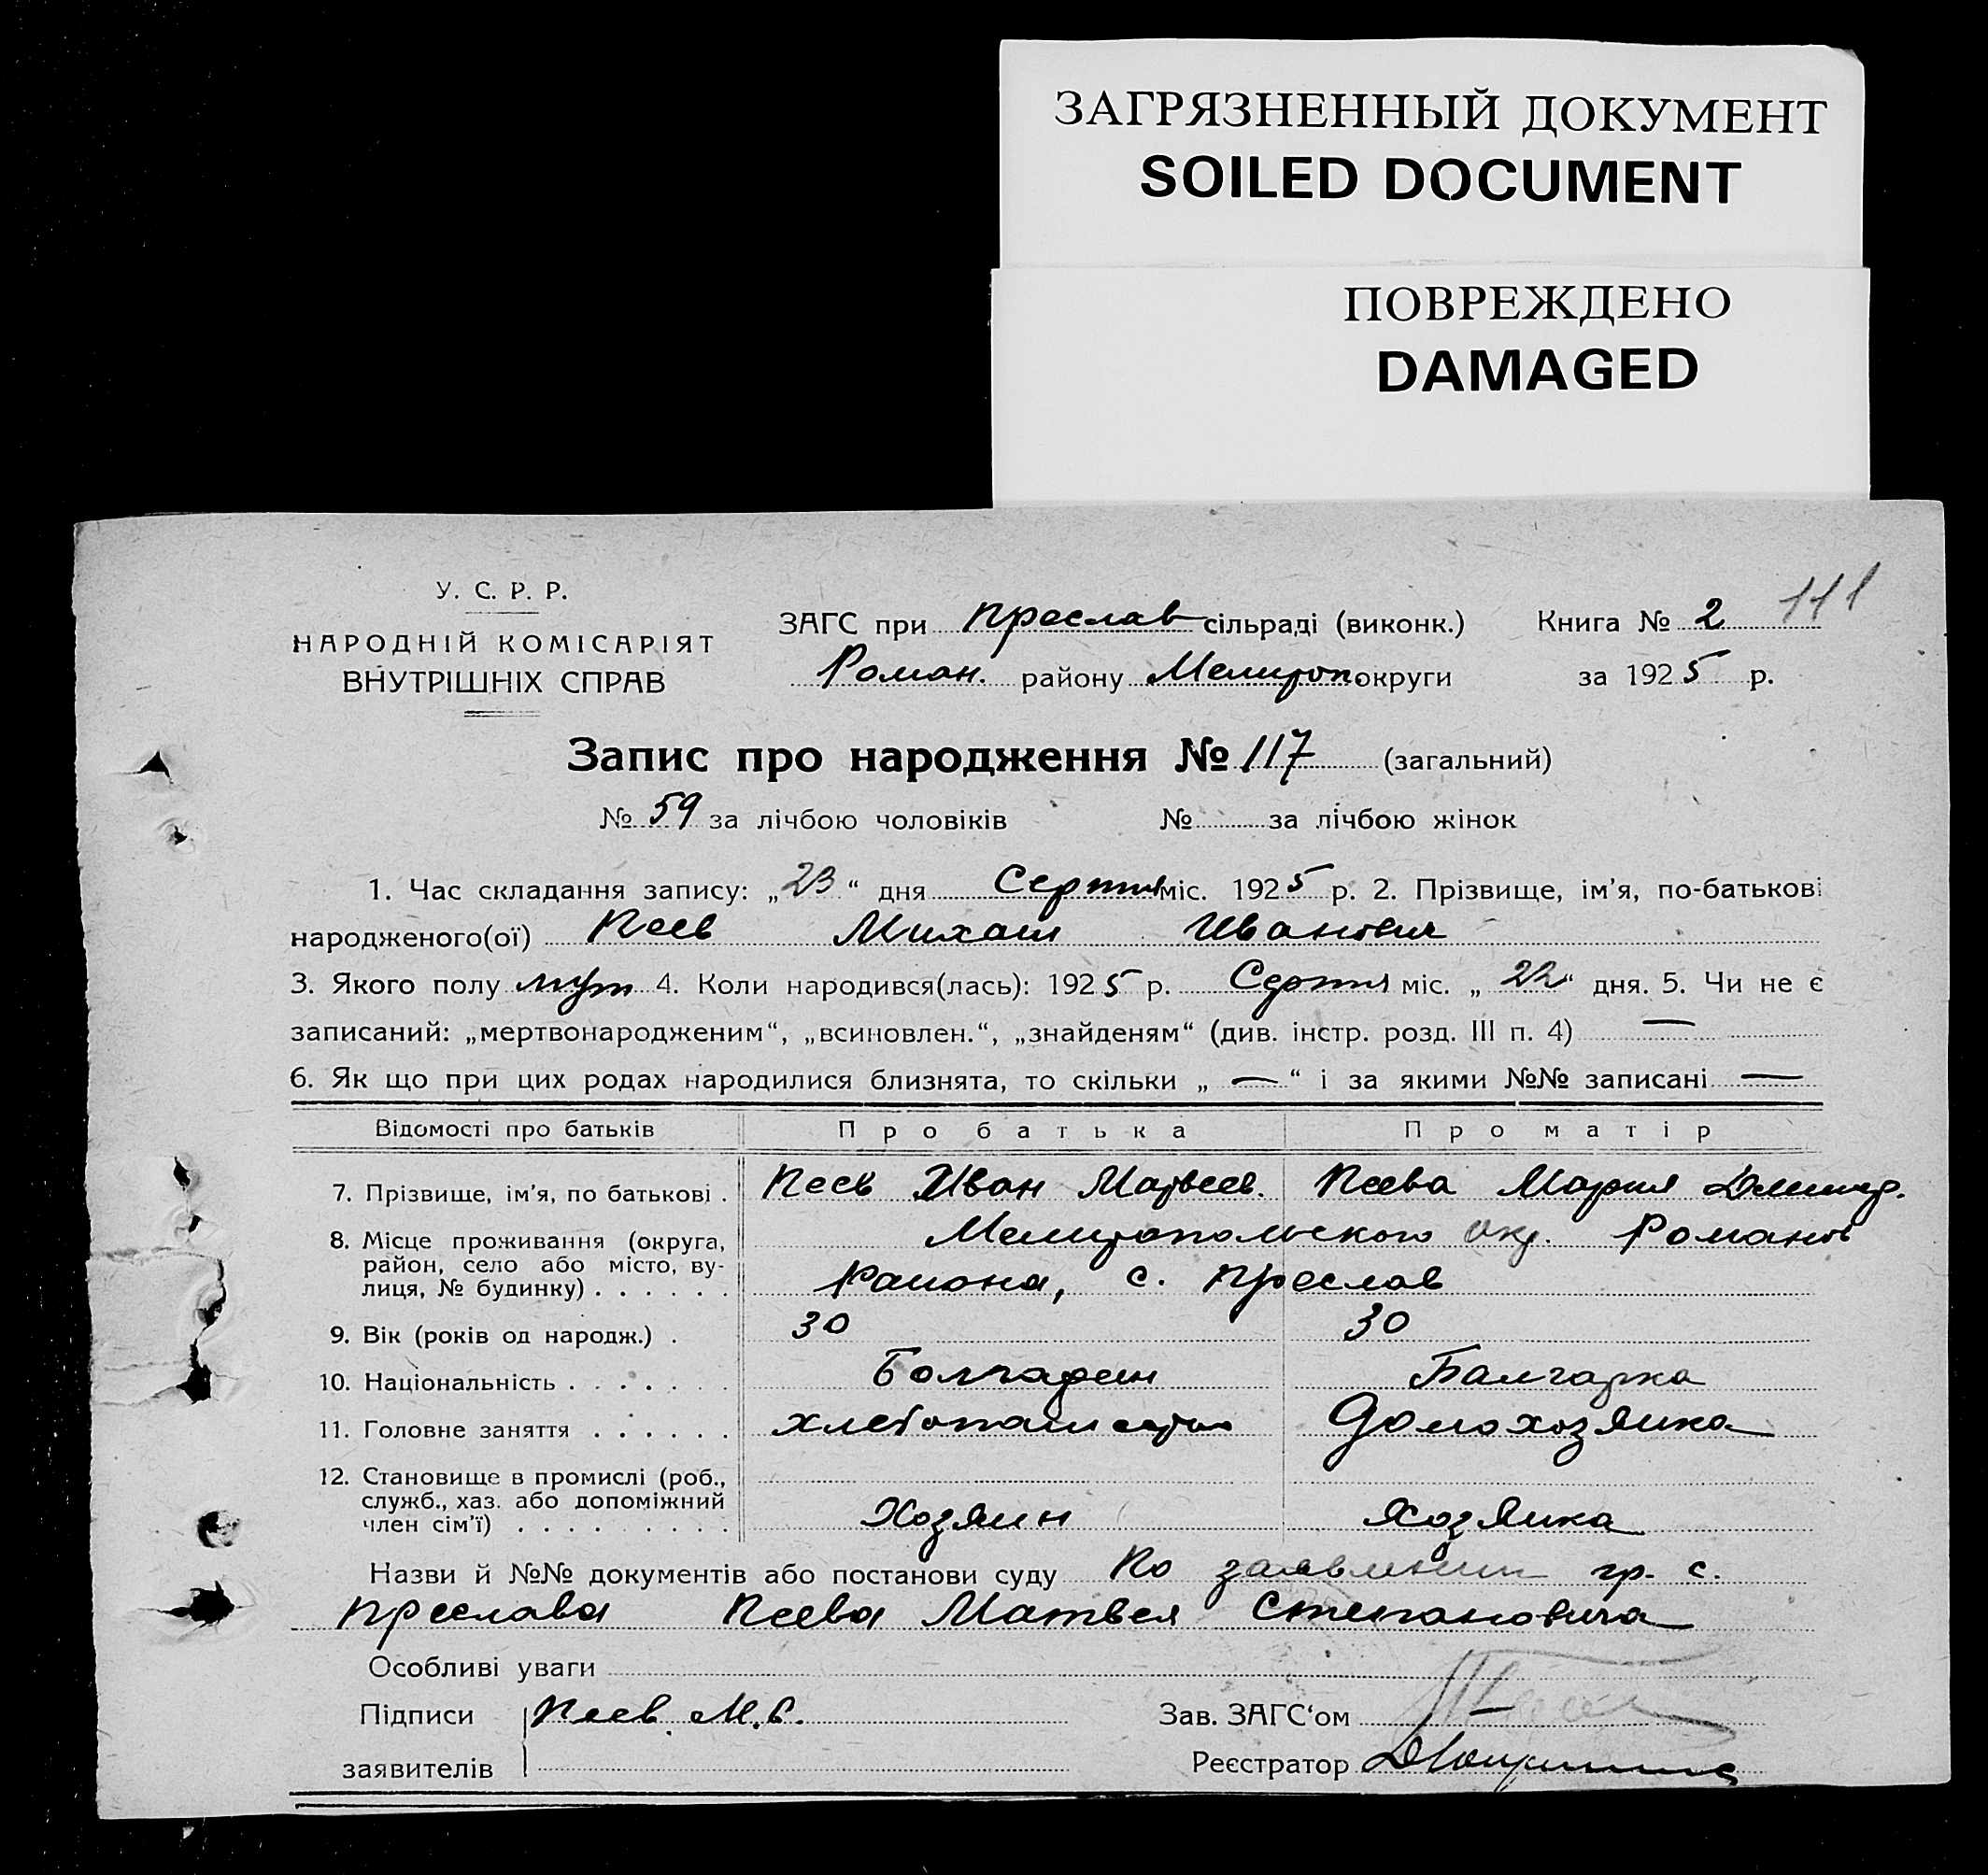 ЗАГРЯЗНЕННЫЙ ДОКУМЕНТ
SOILED DOCUMENT
ПОВРЕЖДЕНО
DAMAGED
У. С. Р. Р.
НАРОДНІЙ КОМІСАРІЯТ
ВНУТРІШНІХ СПРАВ
111
ЗАГС при Преслав сільраді (виконк.) Книга № 2
Роман. району Мелитоп. округи за 1925 р.
Запис про народження № 117 (загальний)
№ 59 за лічбою чоловіків № за лічбою жінок
1. Час складання запису: „23“ дня Серпня міс. 1925 р. 2. Прізвище, ім’я, по-батькові
народженого(ої) Пеев Михаил Иванович
3. Якого полу муж 4. Коли народився(лась): 1925 р. Серпня міс. „22“ дня. 5. Чи не є
записаний: „мертвонародженим“, „всиновлен.“, „знайденям“ (див. інстр. розд. III п. 4) —
6. Як що при цих родах народилися близнята, то скільки „—“ і за якими №№ записані —
Відомості про батьків Про батька Про матір
7. Прізвище, ім’я, по батькові . Пеев Иван Матвеев. Пеева Мария Дмитр.
8. Місце проживання (округа, Мелитопольского окр. Романов
район, село або місто, ву-
лиця, № будинку) . . . . . . района, с. Преслав
9. Вік (років од народж.) . 30 30
10. Національність . . . . . . . Болгарин Балгарка
11. Головне заняття . . . . . . хлебопашество Домохозяика
12. Становище в промислі (роб.,
служб., хаз. або допоміжний
член сім’ї) . . . . . . . . . Хозяин Хозяика
Назви й №№ документів або постанови суду По заявлению гр. с.
Преслава Пеева Матвея Степановича
Особливі уваги
Підписи Пеев М.С. Зав. ЗАГС‘ом
заявителів Реєстратор